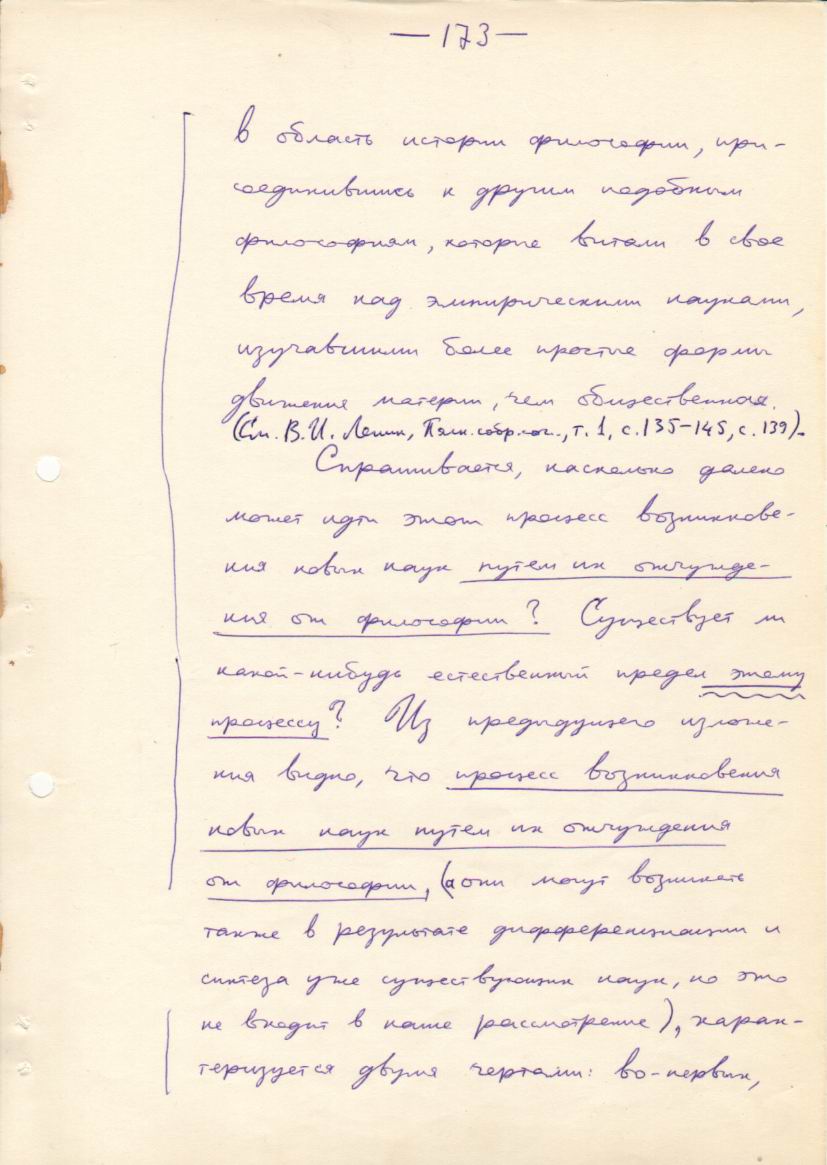 — 173 —
в область истории философии, при-
соединившись к другим подобным
философиям, которые витали в свое
время над эмпирическими науками,
изучавшими более простые формы
движения материи, чем общественная.
(См. В.И. Ленин, Полн. собр. соч., т. 1, с. 135-145, с. 139).
Спрашивается, насколько далеко
может идти этот процесс возникнове-
ния новых наук путем их отчужде-
ния от философии? Существует ли
какой-нибудь естественный предел этому
процессу? Из предыдущего изложе-
ния видно, что процесс возникновения
новых наук путем их отчуждения
от философии, (а они могут возникать
также в результате дифференциации и
синтеза уже существующих наук, но это
не входит в наше рассмотрение), харак-
теризуется двумя чертами: во-первых,